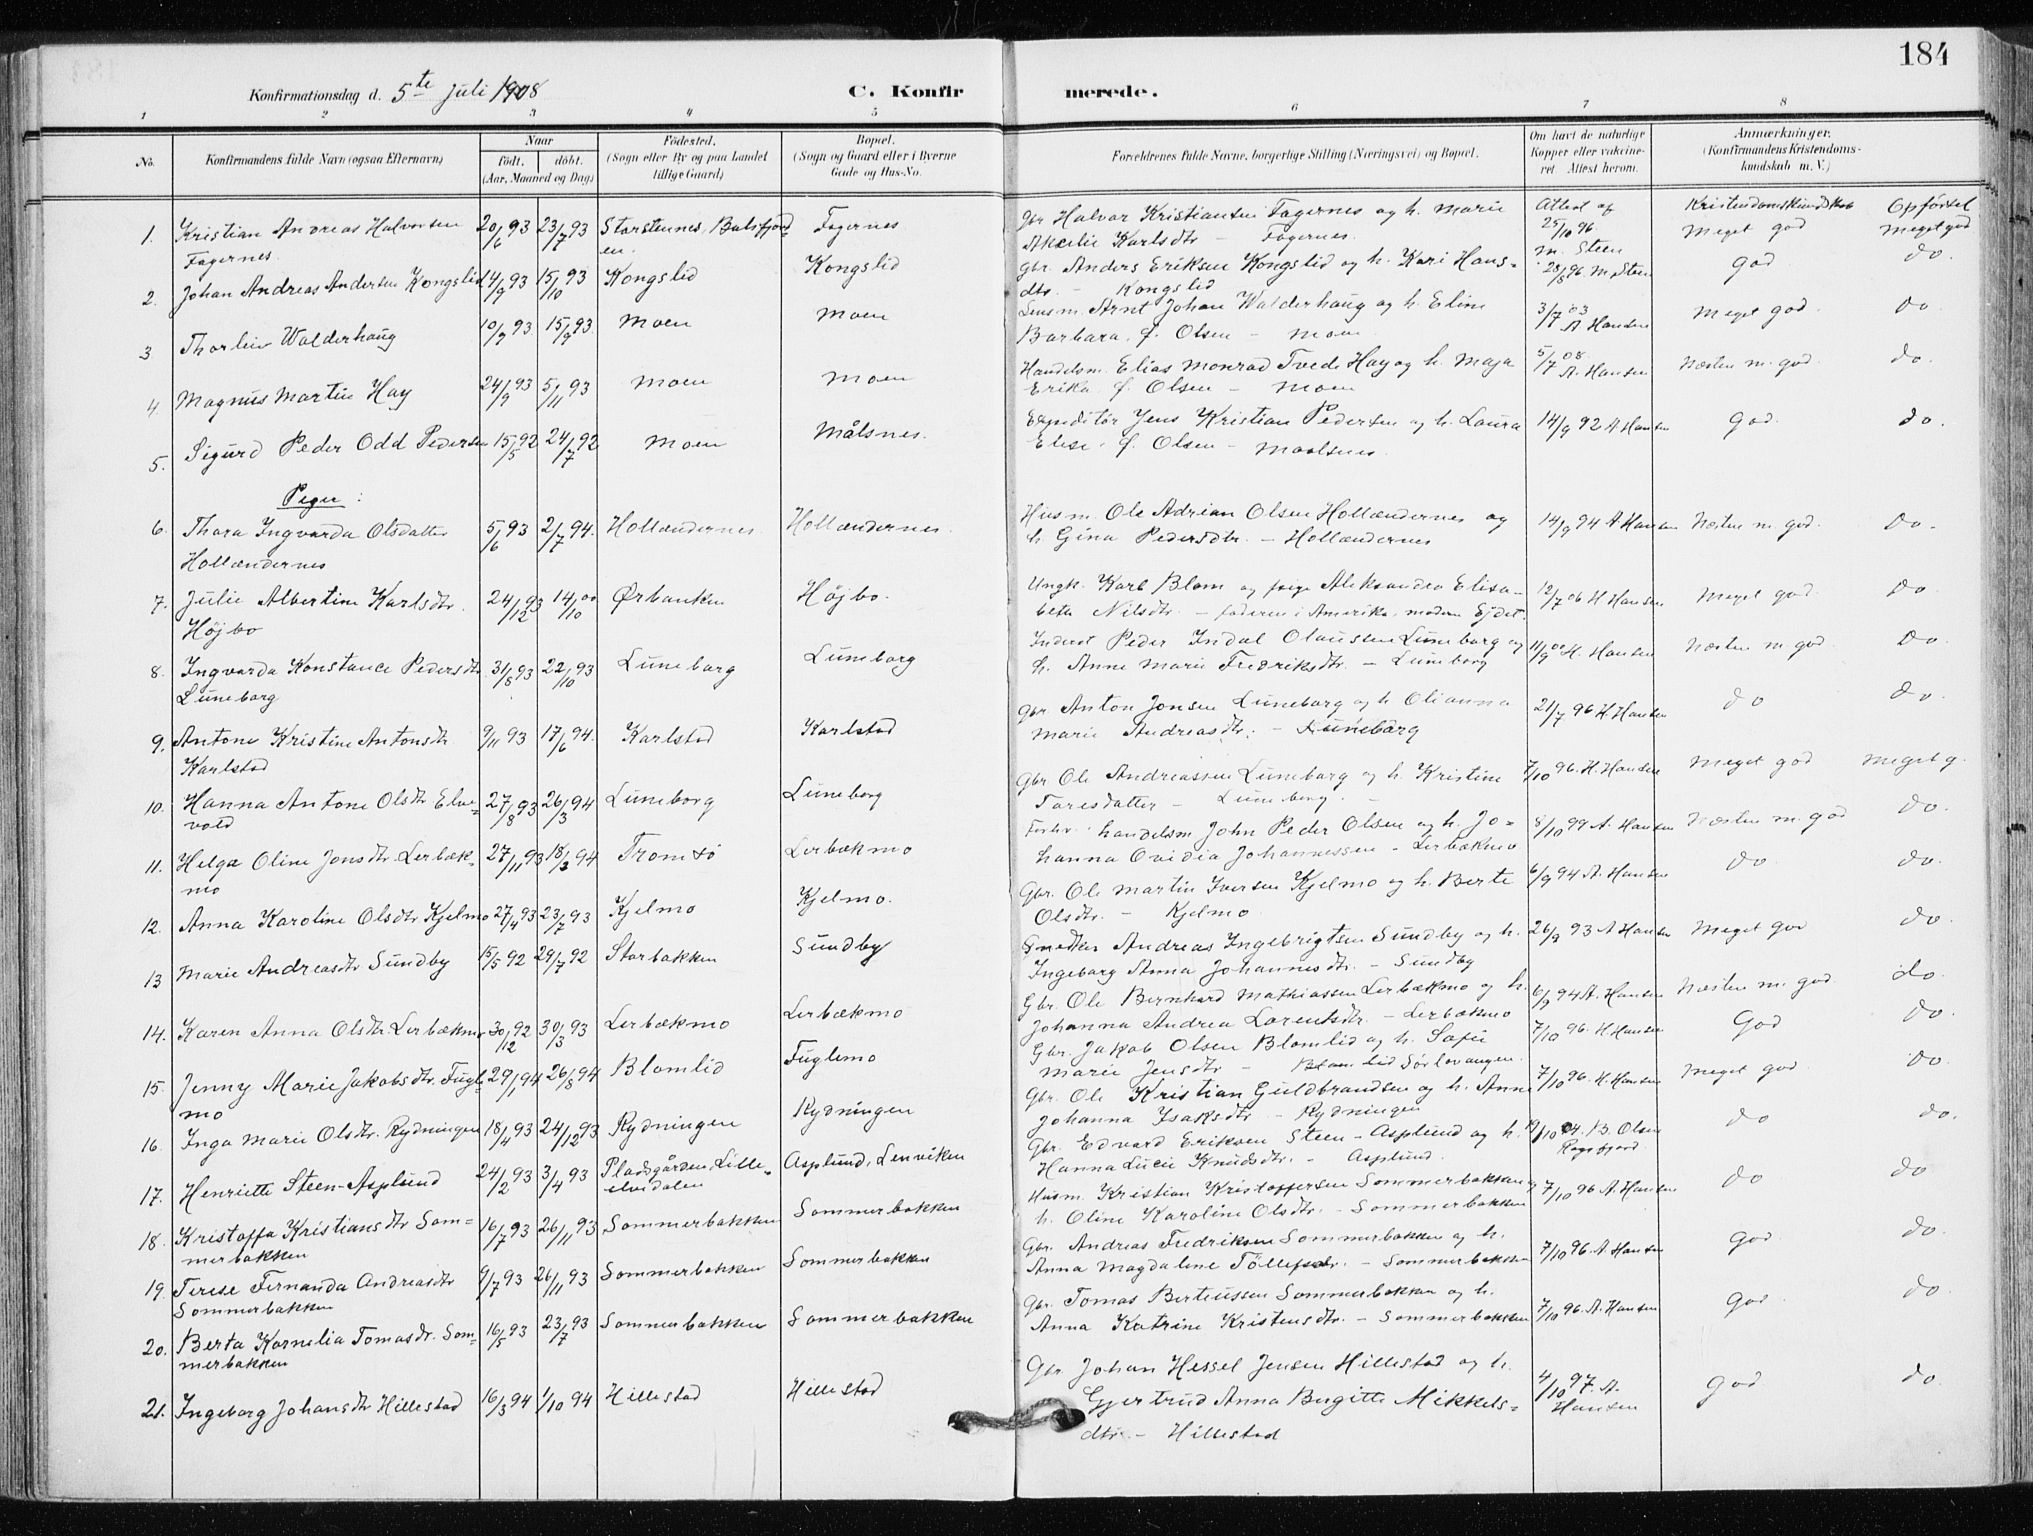 184
Konfirmationsdag d. 5te Juli 1908 C. Konfirmerede.
1 2 3 4 5 6 7 8
No. Konfirmandens fulde Navn (ogsaa Efternavn) Naar født, døbt. (Aar, Maaned og Dag) Fødested. (Sogn eller By og paa Landet tillige Gaard) Bopæl. (Sogn og Gaard eller i Byerne Gade og Hus-No. Forældrenes fulde Navne, borgerlige Stilling (Næringsvei) og Bopæl. Om havt de naturlige Kopper eller vakcineret. Attest herom. Anmærkninger. (Konfirmandens Kristendomskundskab m. V.)
Kristendomskundskab Opførsel
1. Kristian Andreas Halvorsen 20/6 93 23/7 93 Storstennes, Balsfjord- Fagernes Gbr Halvar Kristiansen Fagernes og h. Marie Attest af 25/10 96 Meget god Meget god
Fagernes. en. Akselie Karlsdtr – Fagernes. M. Steen
2. Johan Andreas Andersen Kongslid 14/9 93 15/10 93 Kongslid Kongslid Gbr. Anders Eriksen Kongslid og h. Kari Hans= 28/8 96. M. Steen God do.
dtr. – Kongslid
3 Thorleiv Walderhaug 10/9 93 15/9 93. Moen Moen Lensm. Arnt Johan Walderhaug og h. Eline 3/7 03 A Hansen Meget god. do
Barbara. f. Olsen – Moen
4. Magnus Martin Hay 24/9 93 5/11 93 Moen Moen Handelsm. Elias Monrad Tvede Hay og h. Maja 5/7 08 A. Hansen Næsten m. god. do.
Erika f. Olsen – Moen
5. Sigurd Peder Odd Pedersen 15/5 92 24/7 92 Moen Målsnes. Expeditør Jens Kristian Pedersen og h. Laura 14/9 92 A Hansen God. do.
Elise. f. Olsen – Maalsnes.
Piger :
6. Thora Ingvarda Olsdatter 5/6 93 2/7 94. Hollændernes. Hollændernes. Husm. Ole Adrian Olsen Hollændernes og 14/9 94 A Hansen Næsten m. god. do.
Hollændernes h. Gina Pedersdtr. – Hollændernes
7. Julie Albertine Karlsdtr. 24/12 93 14/10 00 Ørbanken Højbo. Ungk. Karl Blom og pige Aleksandra Elisa- 12/7 06 H Hansen Meget god. do
Højbo beth Nilsdtr. – faderen i Amerika, moderen Ejdet.
8. Ingvarda Konstance Pedersdtr 31/8 93 22/10 93 Luneborg Luneborg Inderst Peder Indal Olaussen Luneborg og 11/9 00 H. Hansen Næsten m. god. do.
Luneborg h. Anne Marie Fredriksdtr. – Luneborg
9. Antone Kristine Antonsdtr. 9/11 93 17/6 94. Karlstad Karlstad Gbr Anton Jonsen Luneborg og h Olianna 21/7 96 H. Hansen do do.
Karlstad Marie Andreasdtr. – Luneborg
10. Hanna Antone Olsdtr Elve- 27/8 93 26/3 94 Luneborg Luneborg Gbr Ole Andreassen Luneborg og h. Kristine 7/10 96. H. Hansen Meget god Meget g.
vold Toresdatter – Luneborg. –
11. Helga Oline Jonsdtr. Lerbæk- 27/11 93 18/3 94 Tromsø Lerbækmo Forhv. handelsm. John Peder Olsen og h. Jo= 8/10 99 A. Hansen Næsten m. god do.
mo hanna Ovidia Johannessen – Lerbækmo
12. Anna Karoline Olsdtr Kjelmo 27/4 93 23/7 93 Kjelmo Kjelmo. Gbr. Ole Martin Iversen Kjelmo og h. Berte 6/9 94 A. Hansen do do.
Olsdtr. – Kjelmo
13 Marie Andreasdtr Sundby 15/5 92 29/7 92 Storbakken Sundby Snedker Andreas Ingebrigtsen Sundby og h. 26/9 93 A Hansen Meget god do.
Ingeborg Anna Johannesdtr. – Sundby
14. Karen Anna Olsdtr. Lerbækmo 30/12 92 30/3 93 Lerbækmo Lerbækmo Gbr. Ole Bernhard Mathiassen Lerbækmo og h. 6/9 94 A. Hansen Næsten m. god. do.
Johanna Andrea Lorentsdtr. – Lerbækmo
15. Jenny Marie Jakobsdtr. Fugl- 29/1 94 26/8 94 Blomlid Fuglemo Gbr. Jakob Olsen Blomlid og h. Sofie 7/10 96. H. Hansen God do.
mo Marie Jensdtr – Blomlid Sørlovangen.
16. Inga Marie Olsdtr. Rydningen 18/4 93 24/12 93 Rydningen Rydningen Gbr. Ole Kristian Guldbrandsen og h. Anne 7/10 96. H. Hansen Meget god. do
Johanna Isaksdtr – Rydningen
17. Henriette Steen-Asplund 24/2 93 3/4 93 Pladsgården, Lille- Asplund, Lenviken Gbr. Edvard Eriksen Steen – Asplund og h. 19/10 04. B. Olsen do do.
elvedalen Hanna Lucie Knudsdtr. – Asplund.
18. Kristoffa Kristiansdtr Som= 16/7 93 26/11 93 Sommerbakken Sommerbakken Husm. Kristian Kristoffersen Sommerbakken og 7/10 96 A. Hansen do do
merbakken h. Oline Karoline Olsdtr. – Sommerbakken
19. Terese Fernanda Andreasdtr 9/7 93 26/11 93 Sommerbakken Sommerbakken Gbr. Andreas Fredriksen Sommerbakken og h. 7/10 96. A. Hansen God do.
Sommerbakken Anna Magdaline – Sommerbakken
20. Berta Kornelia Tomasdr. Som= 16/5 93 23/7 93 Sommerbakken Sommerbakken Gbr. Tomas Berteussen Sommerbakken og h. 7/10 96. A. Hansen God do.
merbakken Anna Katrine Kristensdtr. – Sommerbakken
21. Ingeborg Johansdtr Hillestad 16/3 94 1/10 94 Hillestad Hillestad Gbr Johan Hessel Jensen Hillestad og h. 4/10 97. A. God do.
Gjertrud Anna Birgitte Mikkels= Hansen
dtr – Hillestad